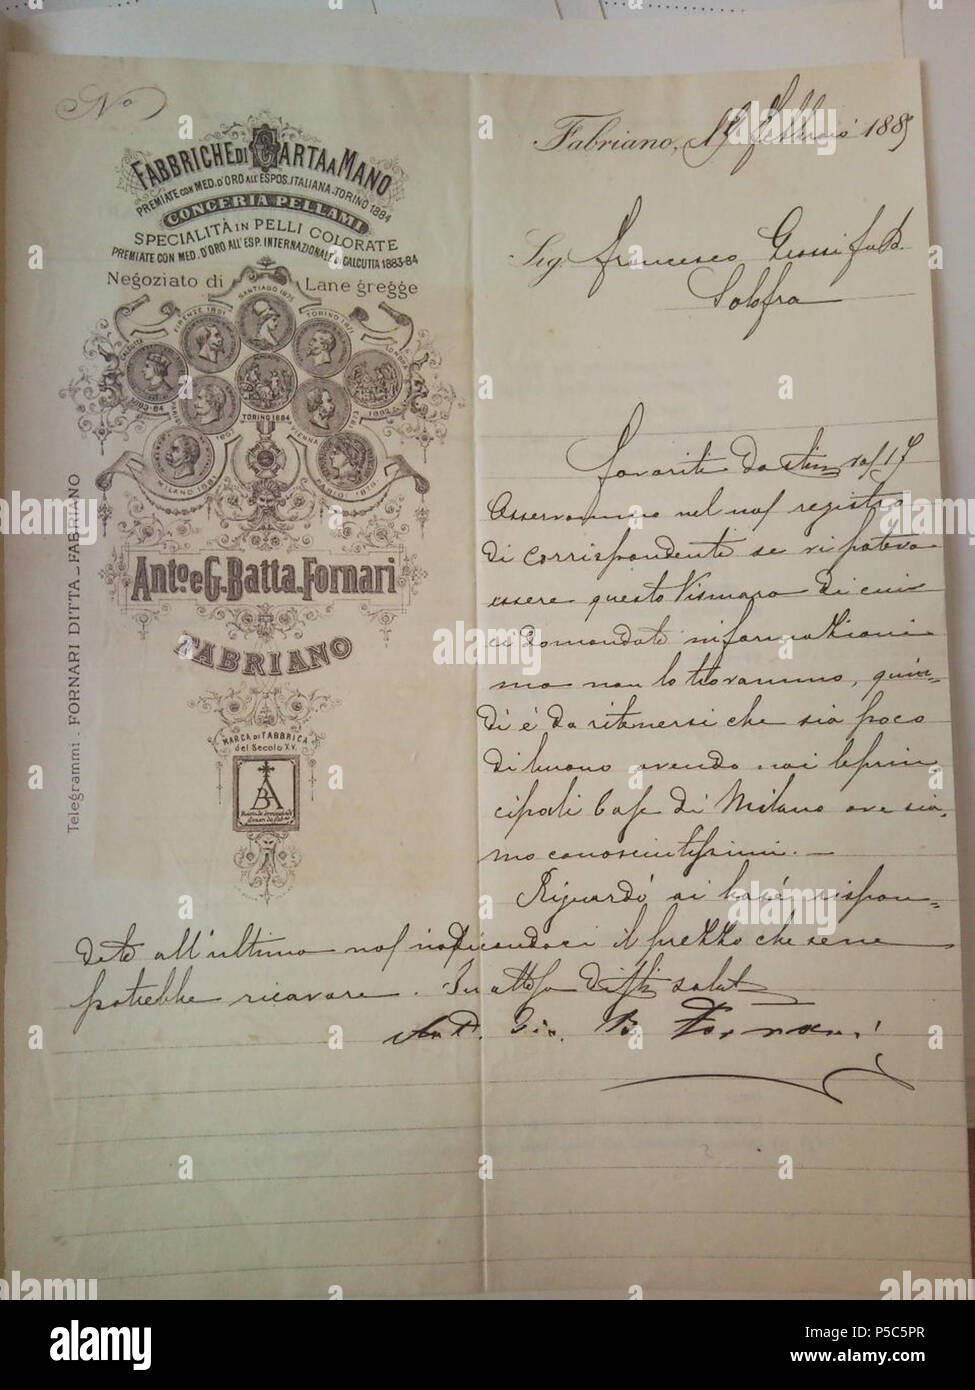 No
FABBRICHE DI CARTA A MANO
PREMIATE CON MED. D'ORO ALL'ESPOS. ITALIANA - TORINO 1884
CONCERIA PELLAMI
SPECIALITÀ IN PELLI COLORATE
PREMIATE CON MED. D'ORO ALL'ESP. INTERNAZIONALE DI CALCUTTA 1883-84
Negoziato di Lane gregge
SANTIAGO 1875
FIRENZE 1861
TORINO 1871
CALCUTTA
1883-84
LONDRA
1862
TORINO 1884
VIENNA
MILANO 1881
PARIGI 1878
Anto. e G. Batta. Fornari
FABRIANO
MARCA DI FABBRICA
del Secolo XV.
Telegrammi - FORNARI DITTA - FABRIANO
Fabriano, 19 Febbraio 1885
Sig. Francesco Grassi fu B.
Solofra
Favoriti da stim vos/ 17
Osservammo nel nos/ registro
di corrispondente se vi poteva
essere questo Vismara di cui
ci domandate informazioni
ma non lo trovammo, quin=
di è da ritenersi che sia poco
di buono avendo noi le prin
cipali Case di Milano ove sia=
mo conoscintissimi. —
Riguardo ai
dete all'ultima nos/ indicandoci il prezzo che se ne
potrebbe ricavare. In attesa disti salut
Ant. Gio. B. Fornari
a alamy stock photo
alamy
Image ID: P5C5PR
www.alamy.com